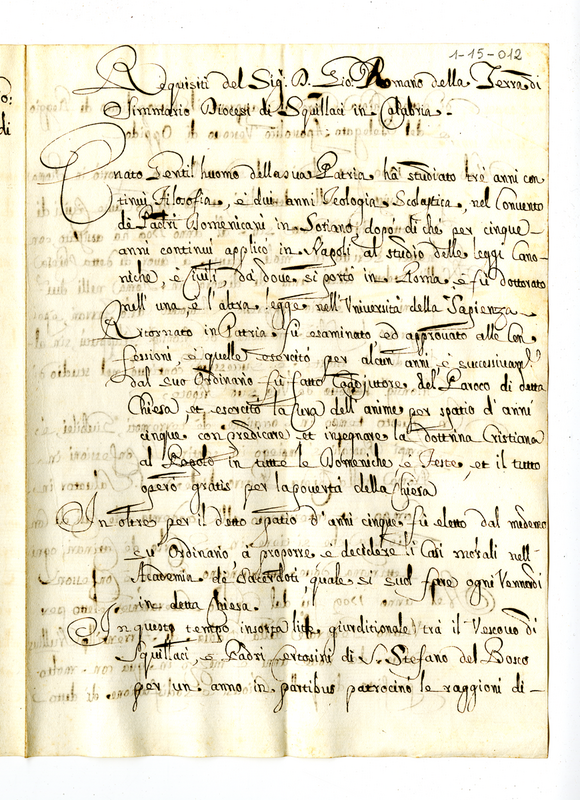 1-15-012
Requisiti del Sig. D. Gio: Romano della Terra di
Simmario Diocesi di Squillaci in Calabria.
E nato Gentil huomo della sua Patria hà studiato trè anni con
tinui Filosofia, è dui anni Teologia Scolastica, nel Convento
de Padri Domenicani in Soriano, dopò di che per cinque
anni continui applicò in Napoli al studio delle leggi Cano-
niche, è Civili, da dove si portò in Roma, è fù dottorato
nell' una, è l'altra legge nell'Università della Sapienza
Ritornato in Patria fù esaminato ed approvato alle Con
fessioni, è quelle esercitò per alcun anni, è successivam.te
dal suo Ordinario fù fatto Coadjutore del Paroco di detta
Chiesa, et esercitò la Cura dell' anime per spatio d' anni
cinque con predicare et insegnare la dottrina Cristiana
al Popolo in tutte le Domeniche è Feste, et il tutto
operò gratis per la povertà della Chiesa
In oltre per il detto spatio d' anni cinque fù eletto dal medemo
suo Ordinario, à proporre, è decidere i Casi morali nell-
Academia de Sacerdoti, quale si suol fare ogni Vennardi
in detta Chiesa.
In questo tempo insorta lite giurditionale trà il Vescovo di
Squillaci, è Padri Certosini di S. Stefano del Bosco
per un anno in partibus patrocinò le raggioni di-